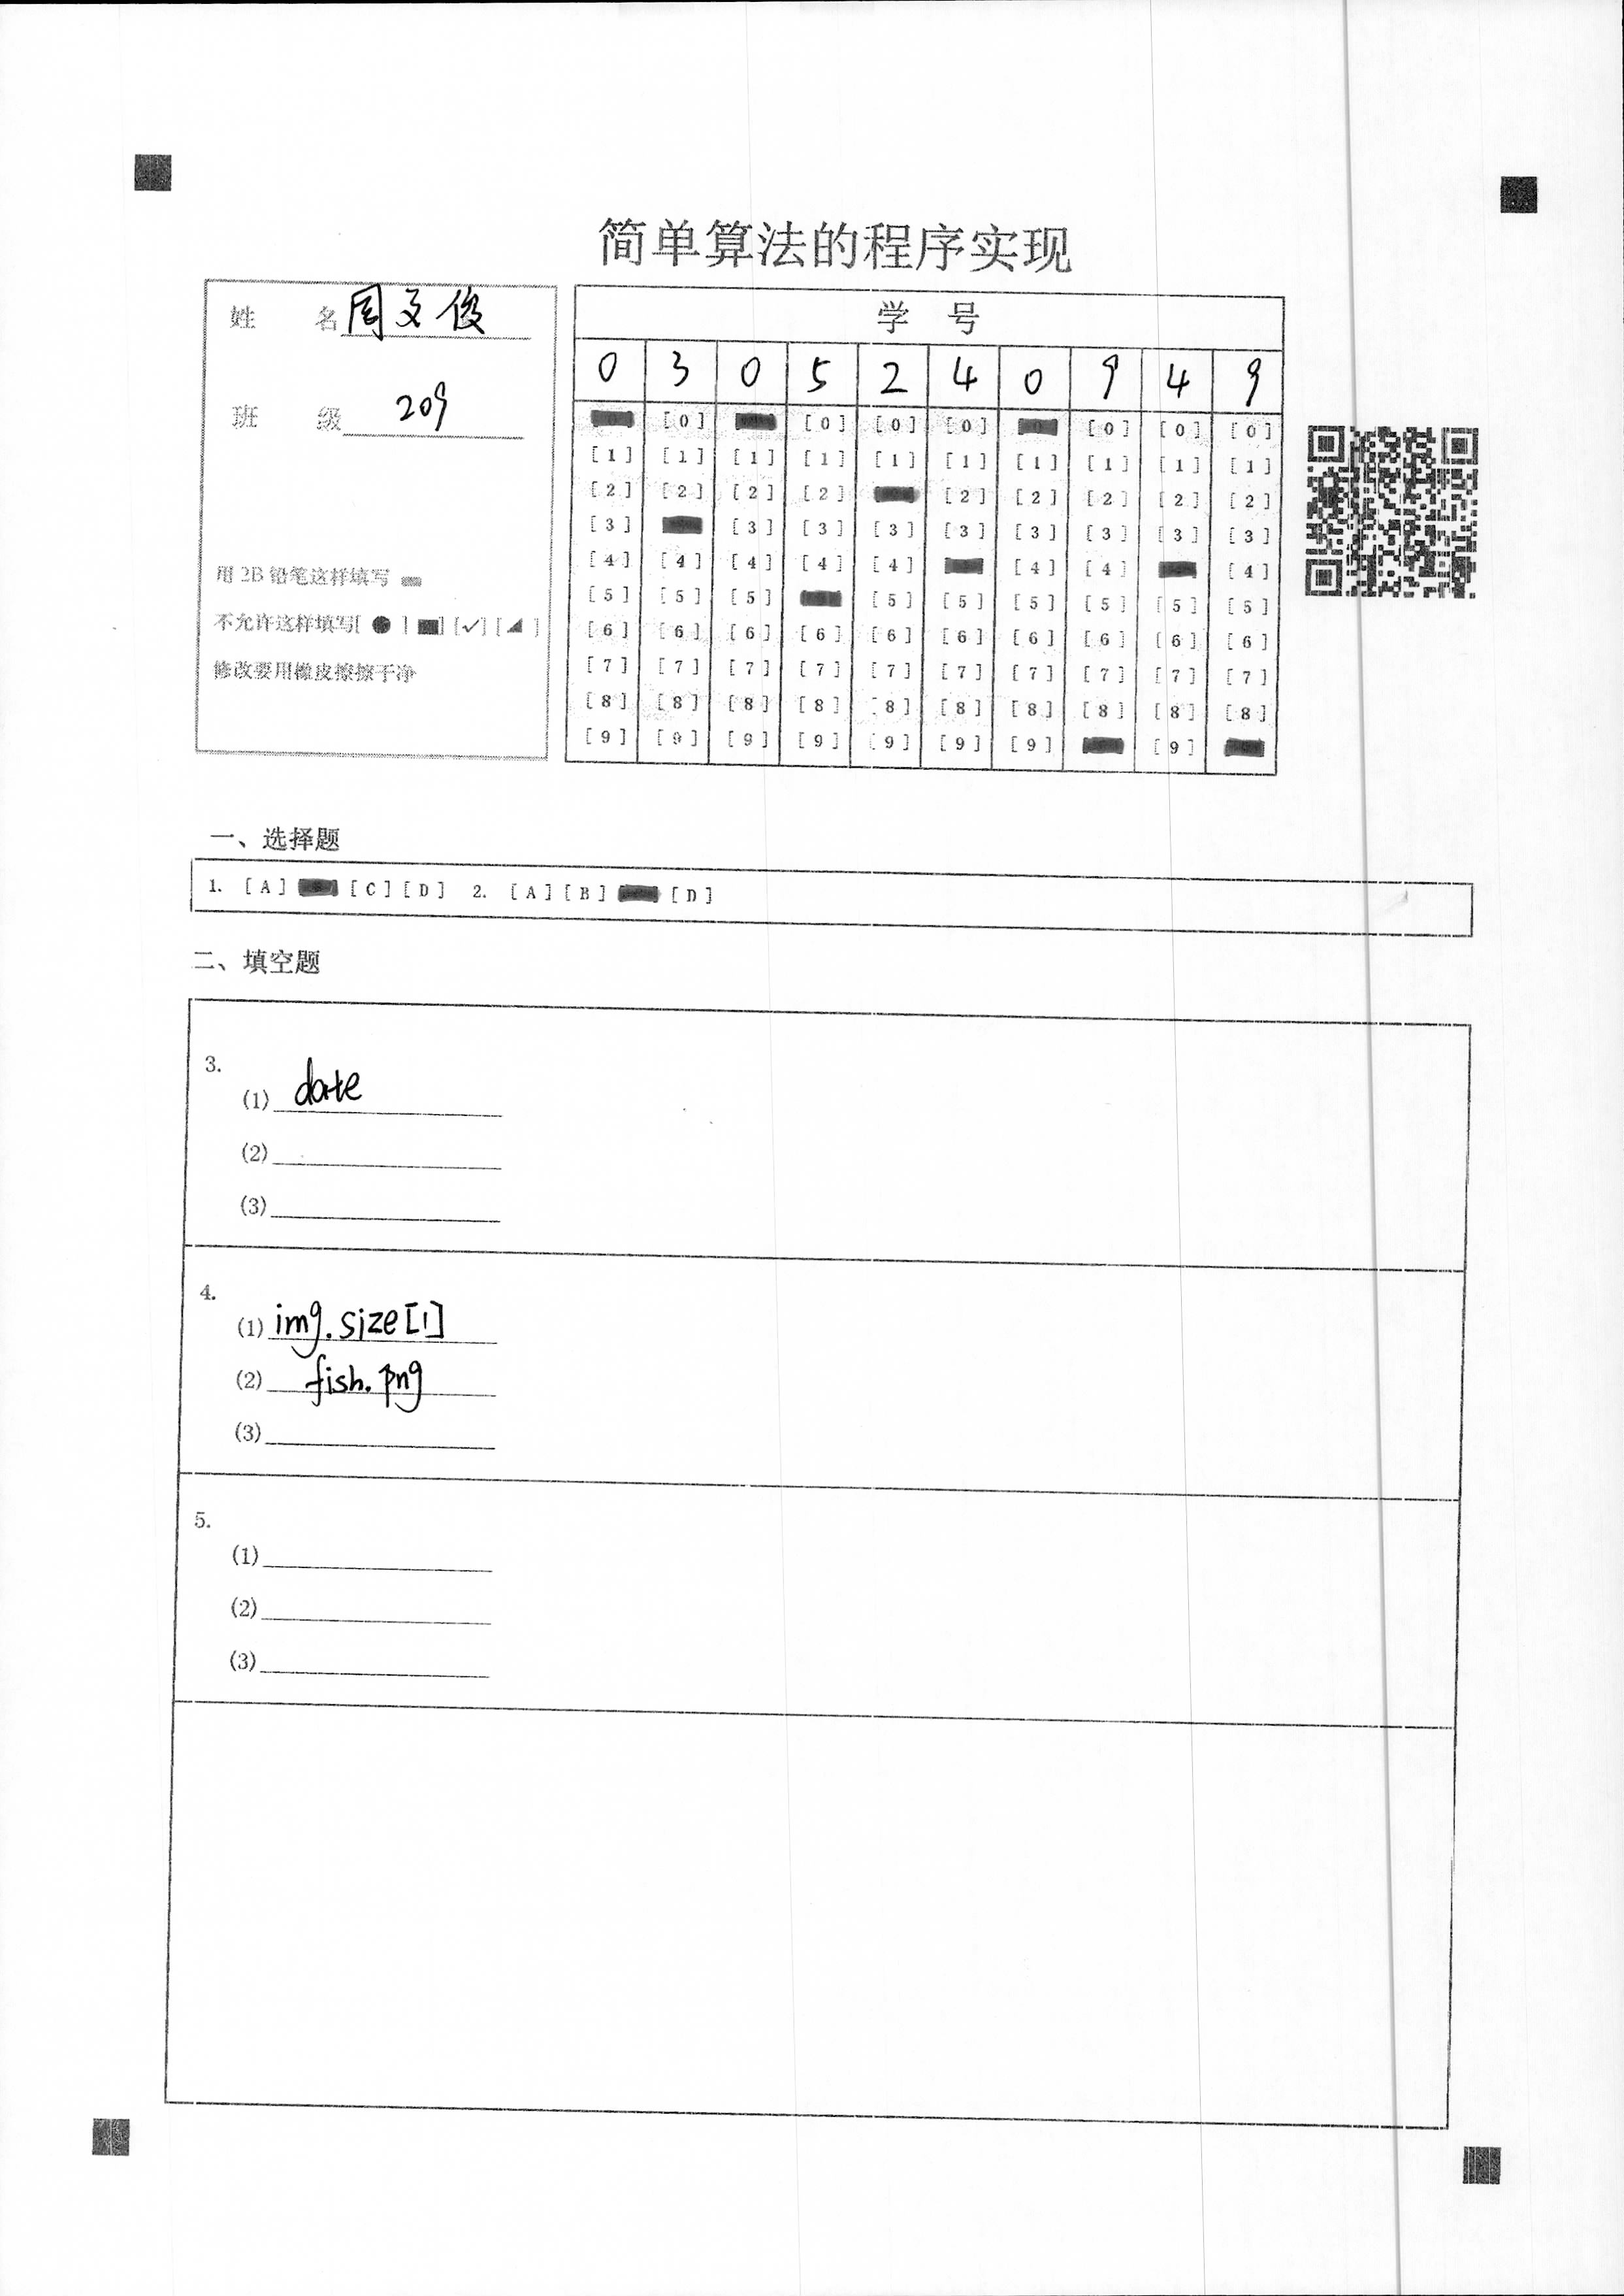 简单算法的程序实现
姓 名 周文俊
班 级 209
用 2B 铅笔这样填写
不允许这样填写[ ● ] [■] [✓] [◢ ]
修改要用橡皮擦擦干净
学 号
0 3 0 5 2 4 0 9 4 9
[0] [0] [0] [0] [0] [0] [0]
[1] [1] [1] [1] [1] [1] [1] [1] [1] [1]
[2] [2] [2] [2] [2] [2] [2] [2] [2]
[3] [3] [3] [3] [3] [3] [3] [3] [3]
[4] [4] [4] [4] [4] [4] [4] [4]
[5] [5] [5] [5] [5] [5] [5] [5] [5]
[6] [6] [6] [6] [6] [6] [6] [6] [6] [6]
[7] [7] [7] [7] [7] [7] [7] [7] [7] [7]
[8] [8] [8] [8] [8] [8] [8] [8] [8] [8]
[9] [9] [9] [9] [9] [9] [9] [9]
一、选择题
1. [A] [C] [D] 2. [A] [B] [D]
二、填空题
3.
(1) date
(2)
(3)
4.
(1) img.size[1]
(2) fish.png
(3)
5.
(1)
(2)
(3)